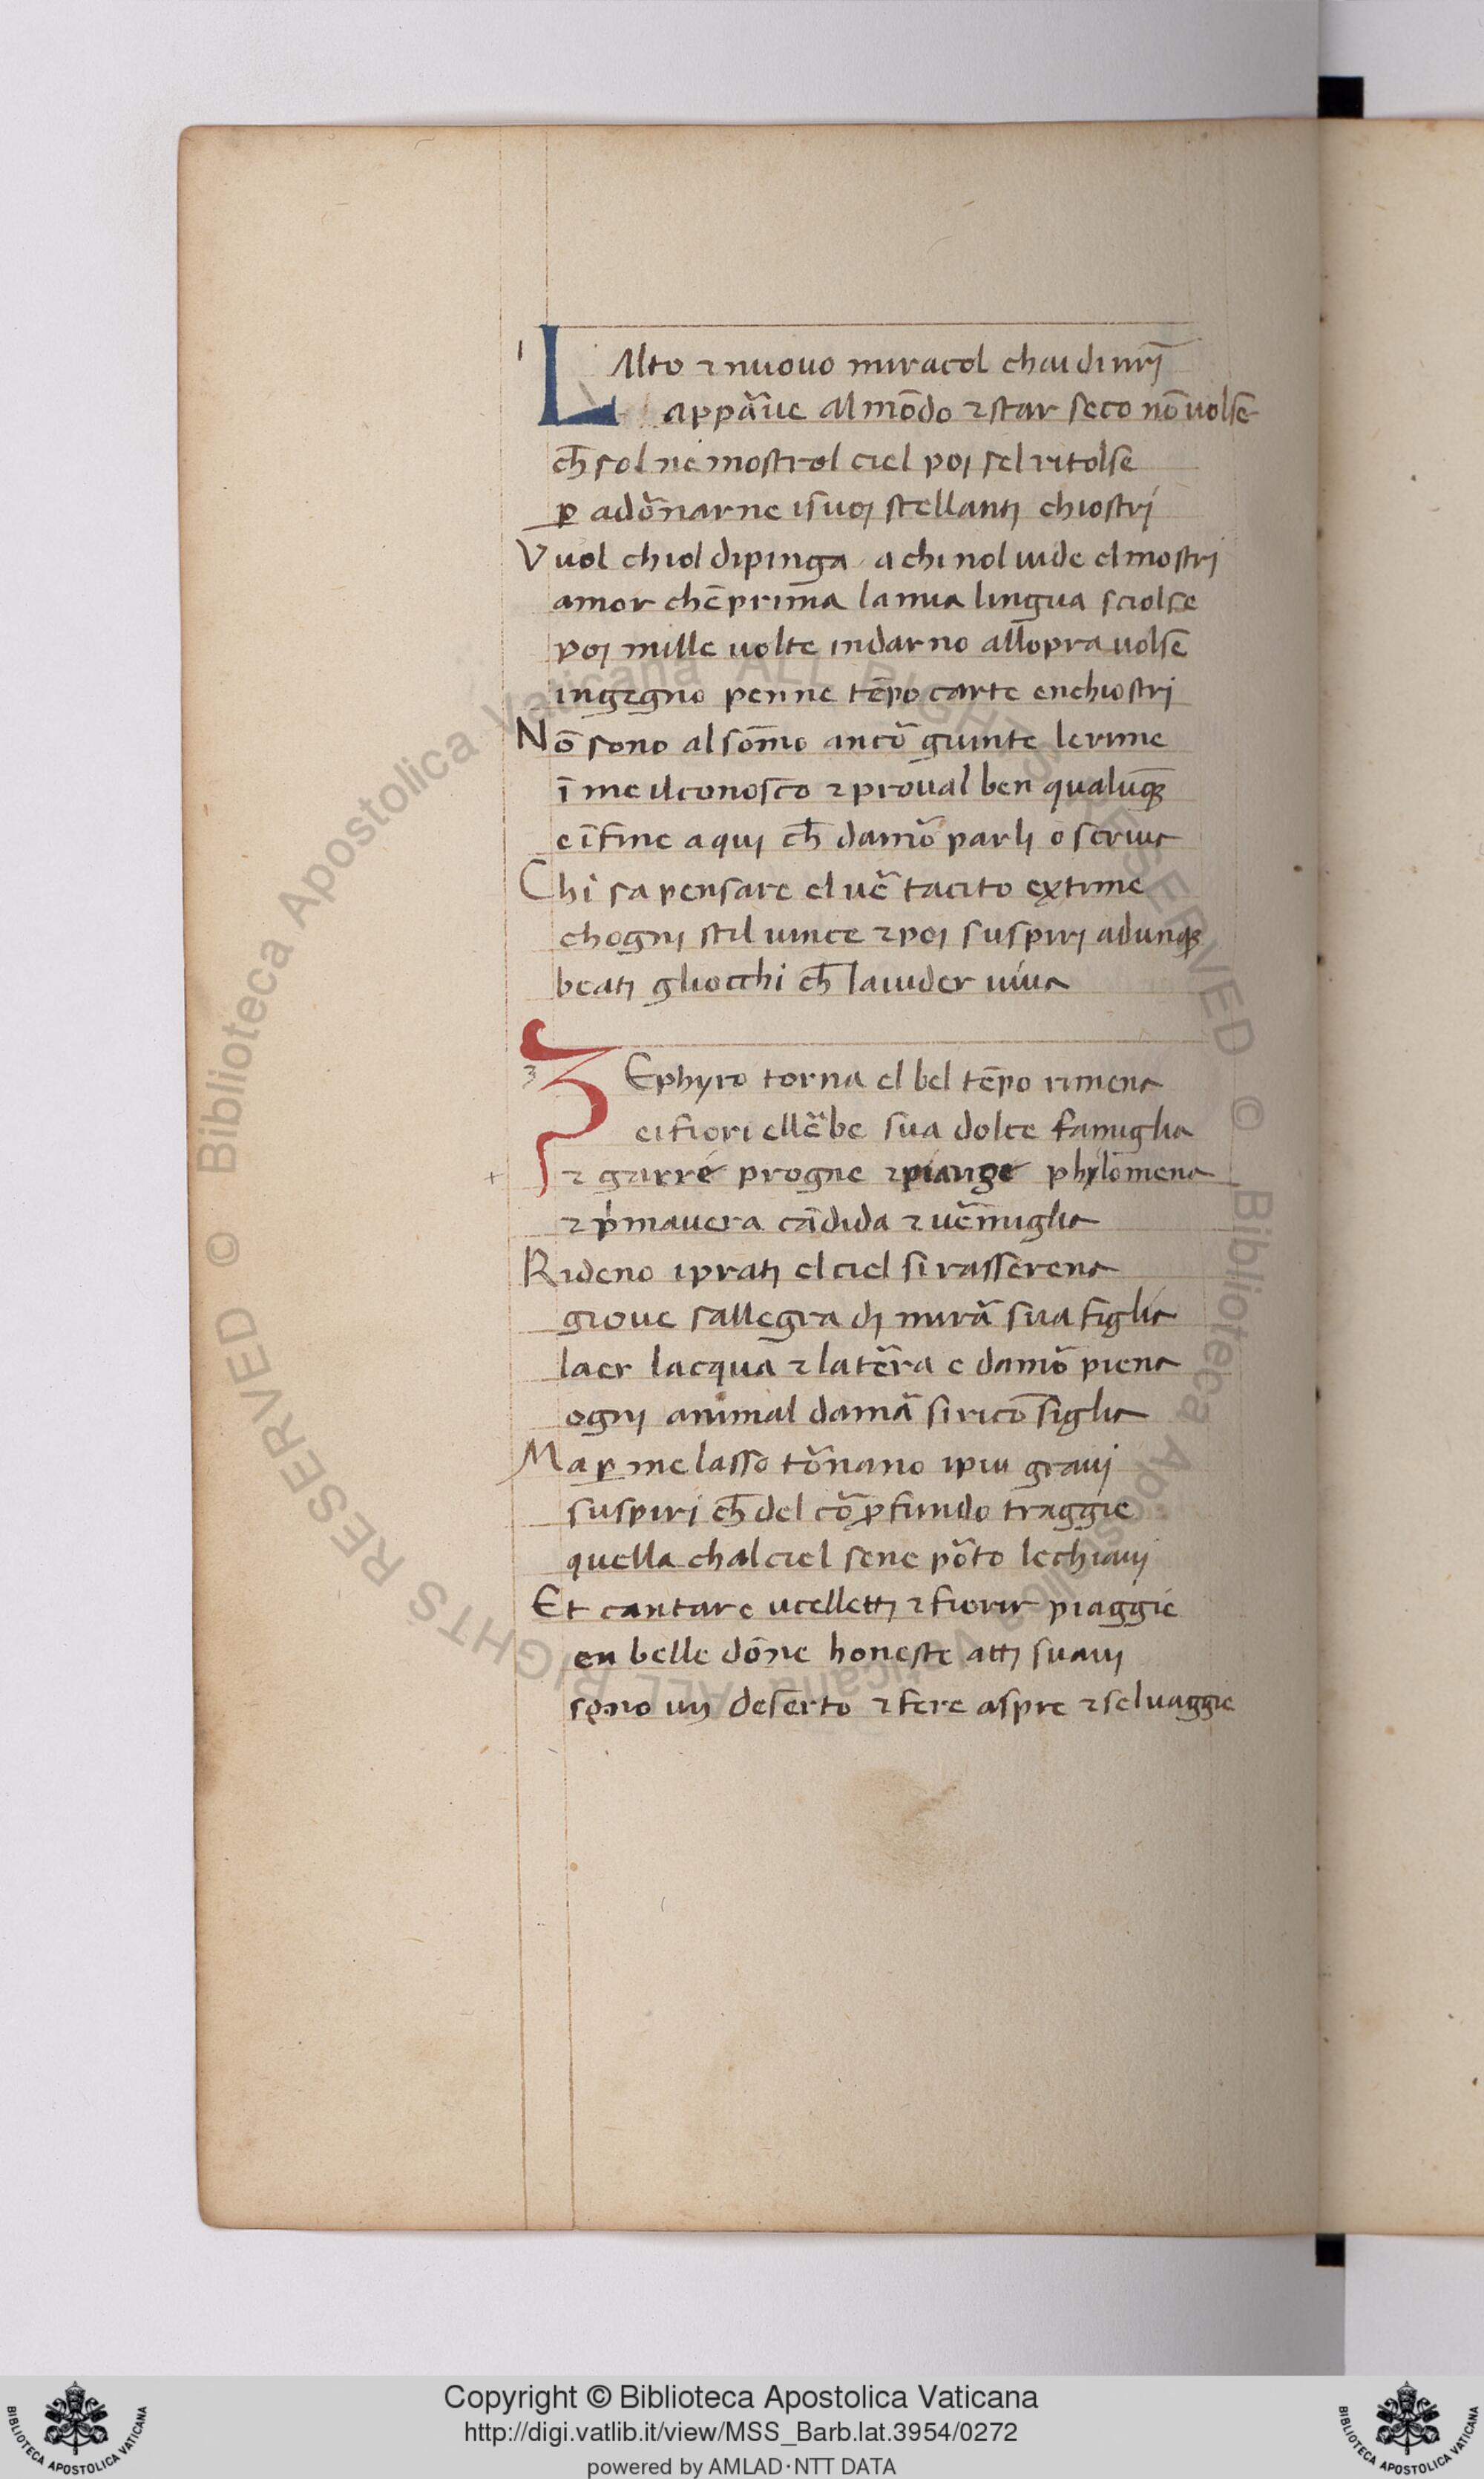 LAlto ⁊ nuouo miracol chai di nr̄j
appãrue al mōdo ⁊ star seco nō uolse
ch̄ sol ne mostrol ciel poj sel ritolse
ꝑ adõrnarne i suoj stellantj chiostrj
Vuol chiol dipinga a chi nol uide el mostrj
amor chē prima la mia lingua sciolse
poj mille uolte indarno allopra uolse
ingegno penne tēpo carte enchiostri
Nō sono al sōmo ancõ giunte le rime
ī me il conosco ⁊ proual ben qualūqꝫ
e īfine a quj ch̄ damõ parlj o scriua
Chi sa pensare el uẽ tacito extime
chognj stil uince ⁊ poj suspirj adunqꝫ
beatj gliocchi ch̄ la uider uiua
3
ZEphyro torna el bel tēpo rimena
ei fiori ellẽbe sua dolce famiglia
+ ⁊ garre progne ⁊ piange phylomena
⁊ pimauera cādida ⁊ uẽmiglia
Rideno i pratj el ciel si rasserena
gioue sallegra dj mirã sua figlia
laer lacqua ⁊ la tẽra e damõ piena
ognj animal damã si ricōsiglia
Ma ꝑ me lasso tõnano i piu grauj
suspiri ch̄ del cõ ꝓfundo traggie
quella chal ciel sene põto le chiauj
Et cantare ucellettj ⁊ fiorir piaggie
en belle dōne honeste attj suauj
sono un deserto ⁊ fere aspre ⁊ seluaggie
© Biblioteca Apostolica Vaticana ALL RIGHTS RESERVED
© Biblioteca Apostolica Vaticana ALL RIGHTS RESERVED
Copyright © Biblioteca Apostolica Vaticana
http://digi.vatlib.it/view/MSS_Barb.lat.3954/0272
powered by AMLAD·NTT DATA
BIBLIOTECA APOSTOLICA VATICANA
BIBLIOTECA APOSTOLICA VATICANA